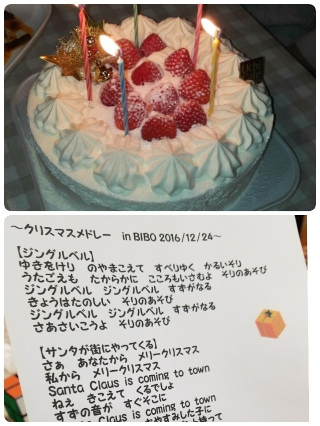 ～クリスマスメドレー　in BIBO 2016/12/24～
【ジングルベル】
ゆきをけり　のやまこえて　すべりゆく　かるいそり
うたごえも　たからかに　こころもいさむよ　そりのあそび
ジングルベル　ジングルベル　すずがなる
きょうはたのしい　そりのあそび
ジングルベル　ジングルベル　すずがなる
さあさいこうよ　そりのあそび
【サンタが街にやってくる】
さぁ　あなたから　メリークリスマス
私から　メリークリスマス
Santa Claus is coming to town
ねえ　きこえて　くるでしょ
すずの音が　すぐそこに
Claus is coming to town
おやすみした子に
持って